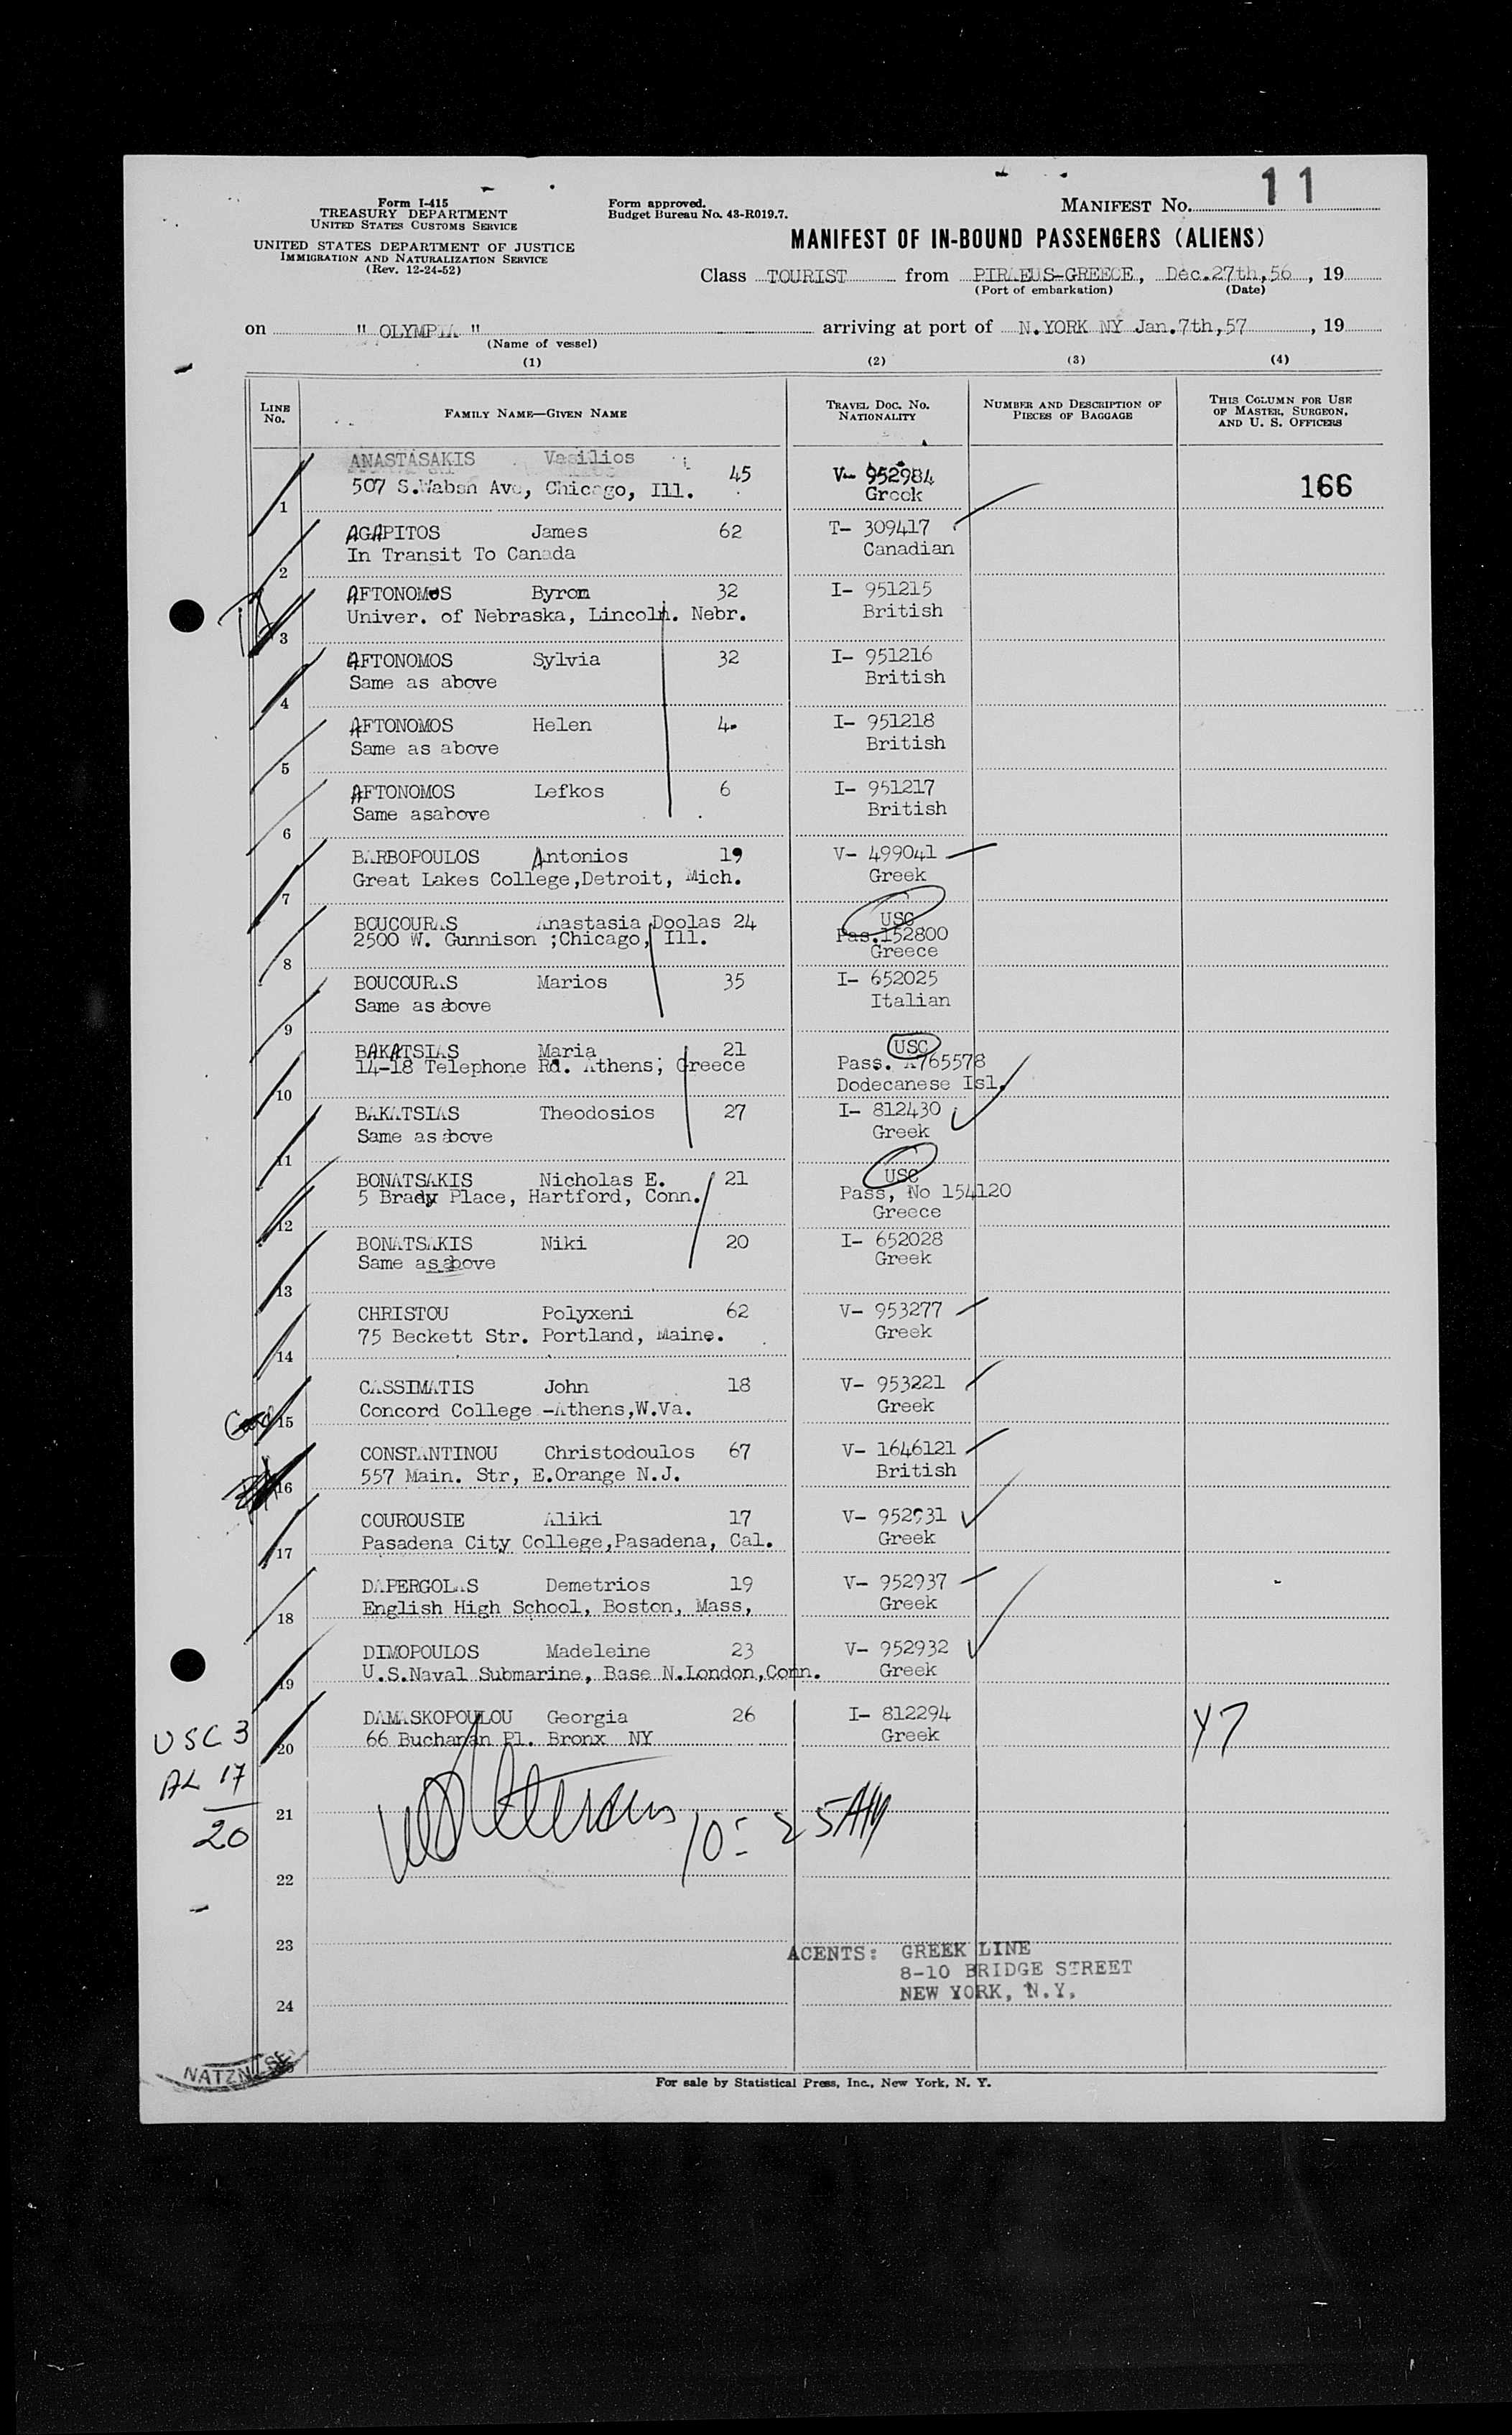 Form I-415
TREASURY DEPARTMENT
UNITED STATES CUSTOMS SERVICE
UNITED STATES DEPARTMENT OF JUSTICE
IMMIGRATION AND NATURALIZATION SERVICE
(Rev. 12-24-52)
Form approved.
Budget Bureau No. 43-R019.7.
MANIFEST NO. 11
MANIFEST OF IN-BOUND PASSENGERS (ALIENS)
Class TOURIST from PIRAEUS-GREECE, Dec.27th,56, 19
(Port of embarkation) (Date)
on " OLYMPIA " arriving at port of N.YORK NY Jan.7th,57, 19
(Name of vessel)
(1) (2) (3) (4)
LINE No. FAMILY NAME—GIVEN NAME TRAVEL DOC. NO. NATIONALITY NUMBER AND DESCRIPTION OF PIECES OF BAGGAGE THIS COLUMN FOR USE OF MASTER, SURGEON, AND U. S. OFFICERS
ANASTASAKIS Vasilios 45 V- 952984
1 507 S.Wabsh Ave, Chicago, Ill. Greek 166
AGAPITOS James 62 T- 309417
2 In Transit To Canada Canadian
AFTONOMOS Byron 32 I- 951215
3 Univer. of Nebraska, Lincoln. Nebr. British
AFTONOMOS Sylvia 32 I- 951216
4 Same as above British
AFTONOMOS Helen 4 I- 951218
5 Same as above British
AFTONOMOS Lefkos 6 I- 951217
6 Same asabove British
BARBOPOULOS Antonios 19 V- 499041
7 Great Lakes College,Detroit, Mich. Greek
USC
BOUCOURAS Anastasia Doolas 24 Pas.152800
8 2500 W. Gunnison ;Chicago, Ill. Greece
BOUCOURAS Marios 35 I- 652025
9 Same as above Italian
USC
BAKATSIAS Maria 21 Pass. A765578
10 14-18 Telephone Rd. Athens; Greece Dodecanese Isl.
BAKATSIAS Theodosios 27 I- 812430
11 Same as above Greek
USC
BONATSAKIS Nicholas E. 21 Pass, No 154120
12 5 Brady Place, Hartford, Conn. Greece
BONATSAKIS Niki 20 I- 652028
13 Same as above Greek
CHRISTOU Polyxeni 62 V- 953277
14 75 Beckett Str. Portland, Maine. Greek
CASSIMATIS John 18 V- 953221
15 Concord College -Athens,W.Va. Greek
CONSTANTINOU Christodoulos 67 V- 1646121
16 557 Main. Str, E.Orange N.J. British
COUROUSIE Aliki 17 V- 952931
17 Pasadena City College,Pasadena, Cal. Greek
DAPERGOLAS Demetrios 19 V- 952937
18 English High School, Boston, Mass, Greek
DIMOPOULOS Madeleine 23 V- 952932
19 U.S.Naval Submarine, Base N.London,Conn. Greek
DAMASKOPOULOU Georgia 26 I- 812294
20 66 Buchanan Pl. Bronx NY Greek Y7
USC 3
AL 17
20
21 10:25AM
22
23
AGENTS: GREEK LINE
8-10 BRIDGE STREET
NEW YORK, N.Y.
24
NATZN
For sale by Statistical Press, Inc., New York, N. Y.